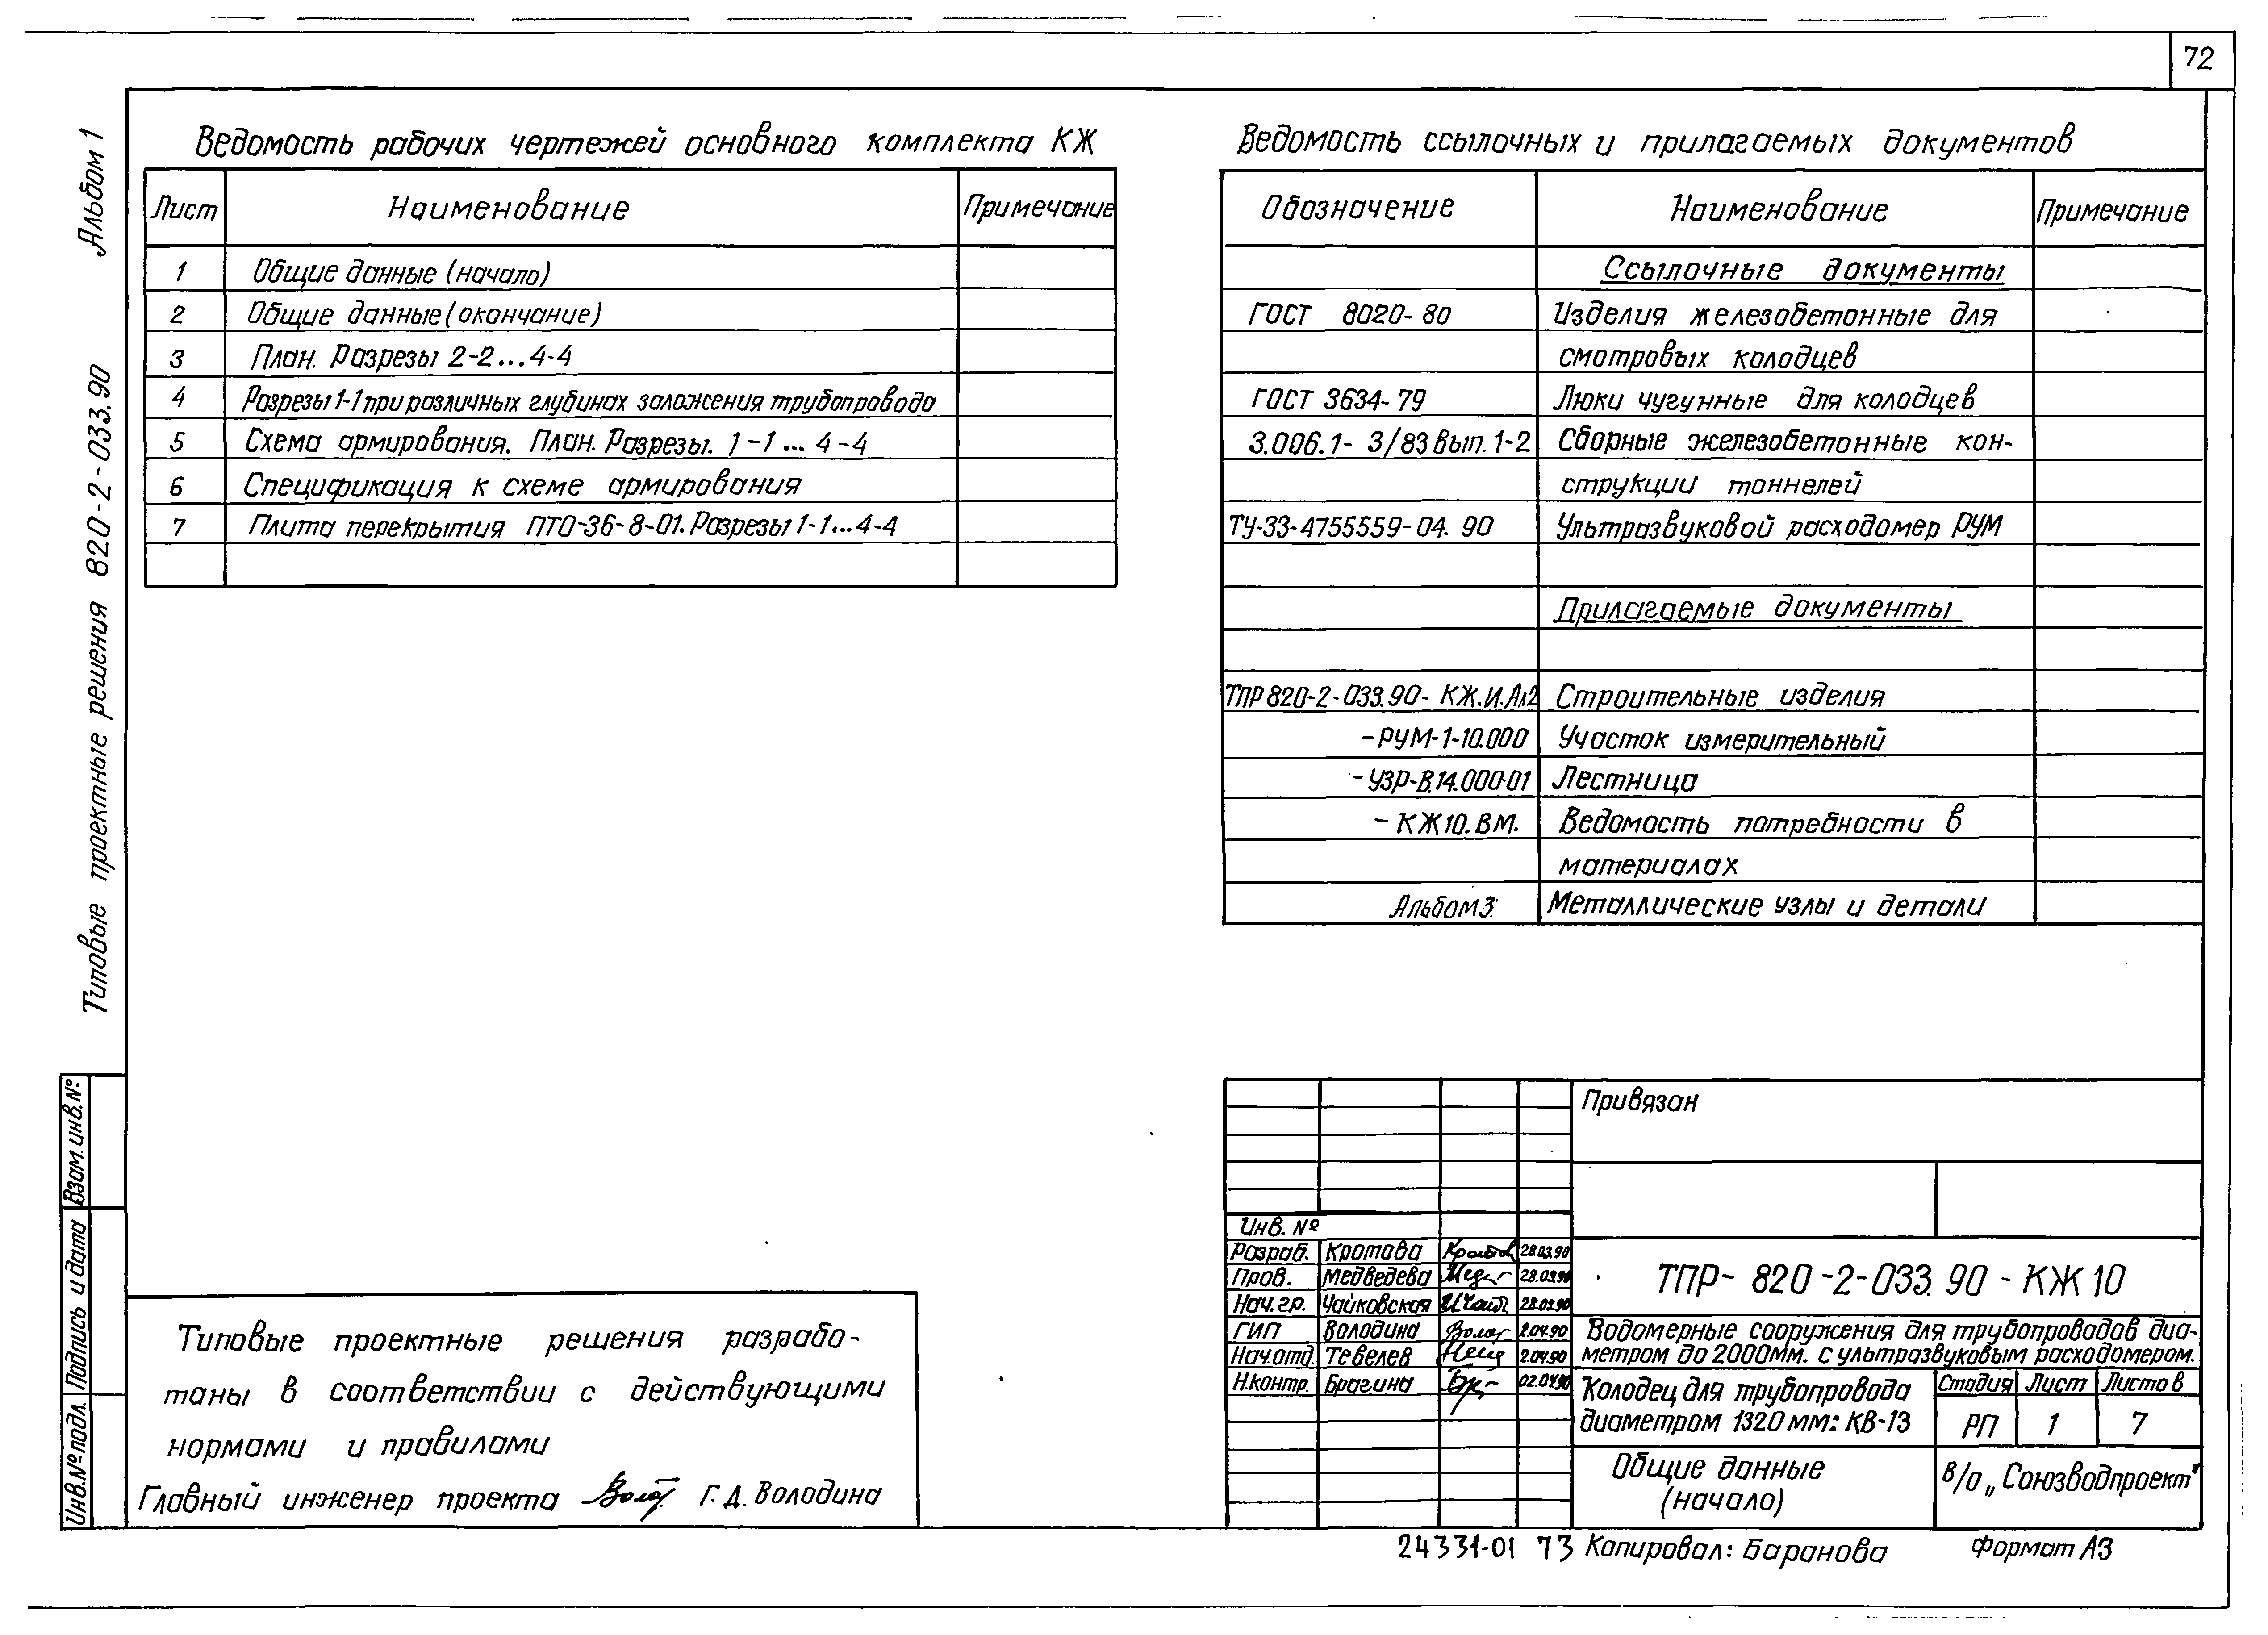 72
Альбом 1
Типовые проектные решения 820-2-033.90
Взам. инв. №
Подпись и дата
Инв. № подл.
Ведомость рабочих чертежей основного комплекта КЖ
Лист Наименование Примечание
1 Общие данные (начало)
2 Общие данные (окончание)
3 План. Разрезы 2-2...4-4
4 Разрезы 1-1 при различных глубинах заложения трубопровода
5 Схема армирования. План. Разрезы. 1-1... 4-4
6 Спецификация к схеме армирования
7 Плита перекрытия ПТО-36-8-01. Разрезы 1-1...4-4
Ведомость ссылочных и прилагаемых документов
Обозначение Наименование Примечание
Ссылочные документы
ГОСТ 8020-80 Изделия железобетонные для
смотровых колодцев
ГОСТ 3634-79 Люки чугунные для колодцев
3.006.1-3/83 Вып. 1-2 Сборные железобетонные кон-
струкции тоннелей
ТУ-33-4755559-04.90 Ультразвуковой расходомер РУМ
Прилагаемые документы
ТПР 820-2-033.90-КЖ.И.Ал2 Строительные изделия
-РУМ-1-10.000 Участок измерительный
-УЗР-В.14.000-01 Лестница
-КЖ10.ВМ. Ведомость потребности в
материалах
Альбом 3 Металлические узлы и детали
Типовые проектные решения разрабо-
таны в соответствии с действующими
нормами и правилами
Главный инженер проекта Г.Д. Володина
Привязан
Инв. №
Разраб. Кротова 28.03.90
Пров. Медведева 28.03.90
Нач. гр. Чайковская 28.03.90
ГИП Володина 2.04.90
Нач. отд. Тевелев 2.04.90
Н. контр. Брагина 02.04.90
ТПР-820-2-033.90-КЖ10
Водомерные сооружения для трубопроводов диа-
метром до 2000мм. с ультразвуковым расходомером.
Колодец для трубопровода
диаметром 1320 мм: КВ-13
Стадия Лист Листов
РП 1 7
Общие данные
(начало)
В/о „Союзводпроект"
24331-01 73 Копировал: Баранова Формат А3